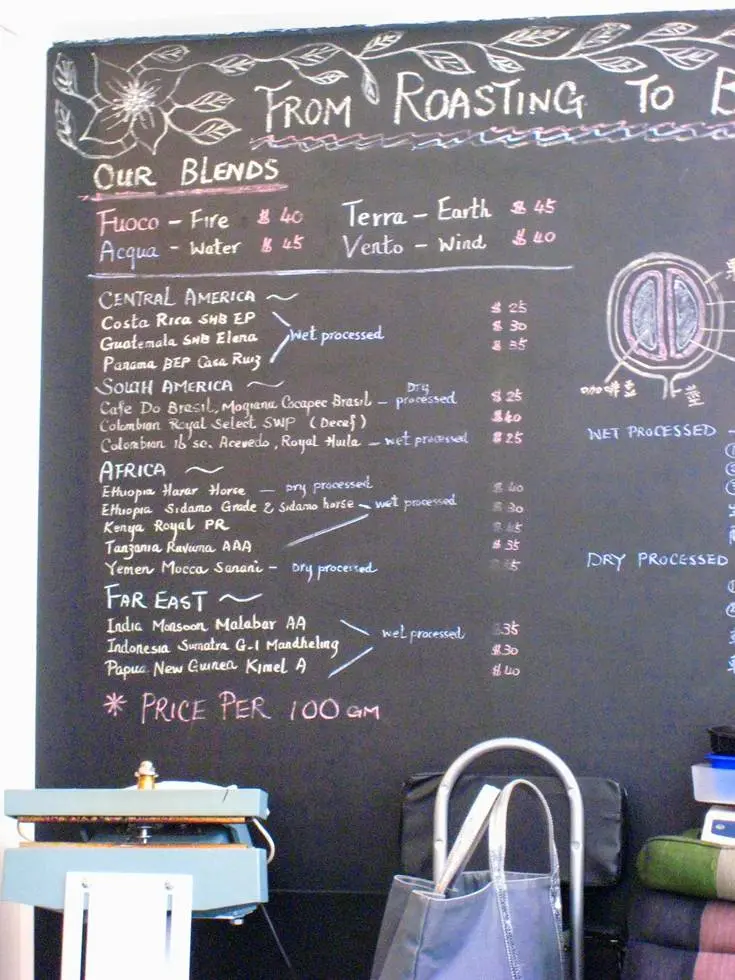 FROM ROASTING TO B
OUR BLENDS
Fuoco - Fire $ 40 Terra - Earth $ 45
Acqua - Water $ 45 Vento - Wind $ 40
CENTRAL AMERICA ~
Costa Rica SHB EP $ 25
Guatemala SHB Elena $ 30
Wet processed
Panama BEP Casa Ruiz $ 35
SOUTH AMERICA ~
Cafe Do Brasil, Mogiana Cocapec Brasil - Dry processed $ 25
Colombian Royal Select SWP (Decaf) $40
Colombian 16 sc. Acevedo, Royal Huila - wet processed $ 25
AFRICA ~
Ethiopia Harar Horse - Dry processed $ 40
Ethiopia Sidamo Grade 2 Sidamo horse - wet processed $ 30
Kenya Royal PR $ 45
Tanzania Ruvuma AAA $ 35
Yemen Mocca Sanani - Dry processed
FAR EAST ~
India Monsoon Malabar AA $35
Indonesia Sumatra G-1 Mandheling wet processed $30
Papua New Guinea Kimel A $40
* PRICE PER 100 GM
咖啡豆
莖
WET PROCESSED -
DRY PROCESSED